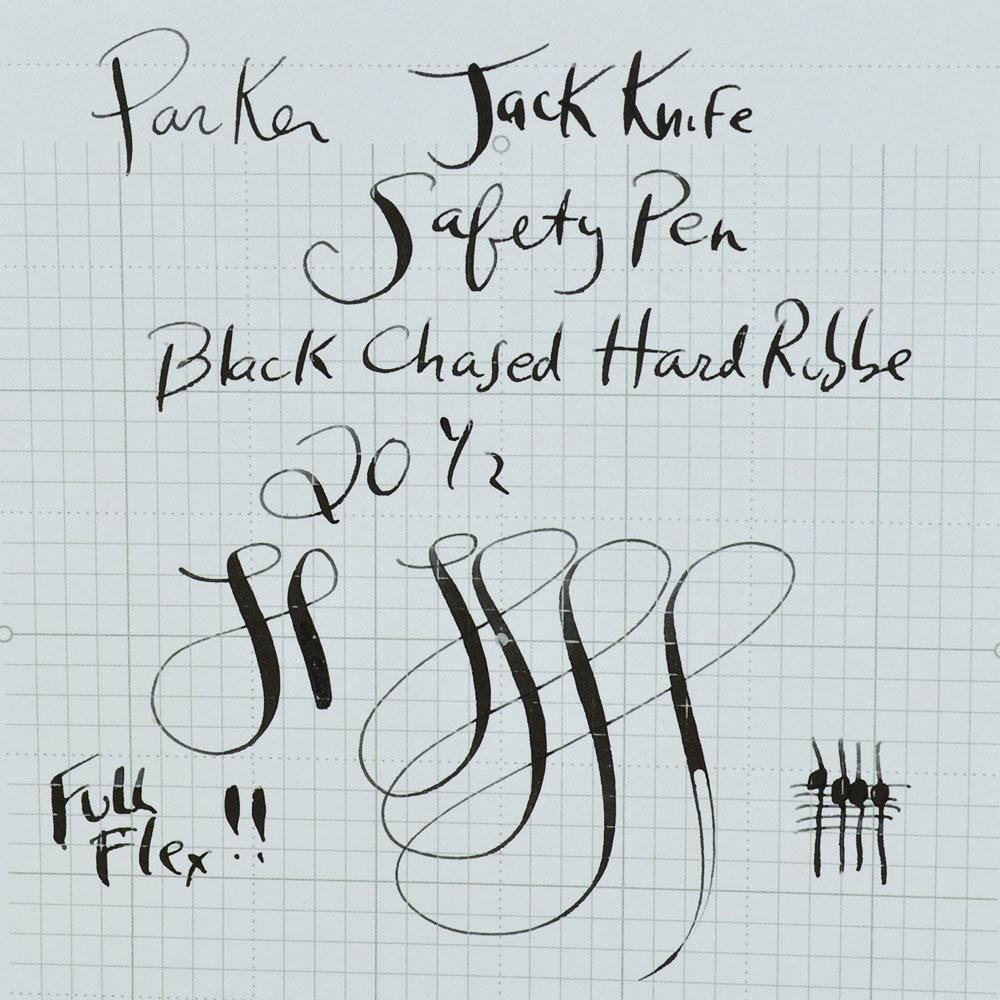 Parker Jack Knife
Safety Pen
Black Chased Hard Rubbe
20 1/2
Full
Flex!!